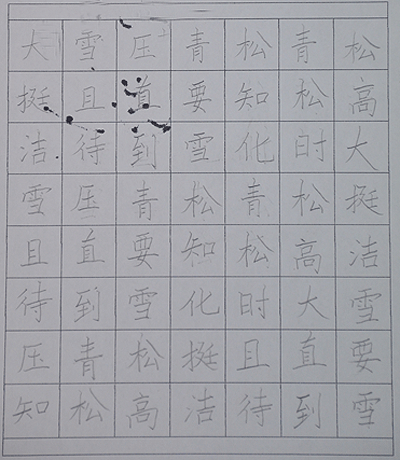 大雪压青松青松
挺且直要知松高
洁待到雪化时大
雪压青松青松挺
且直要知松高洁
待到雪化时大雪
压青松挺且直要
知松高洁待到雪